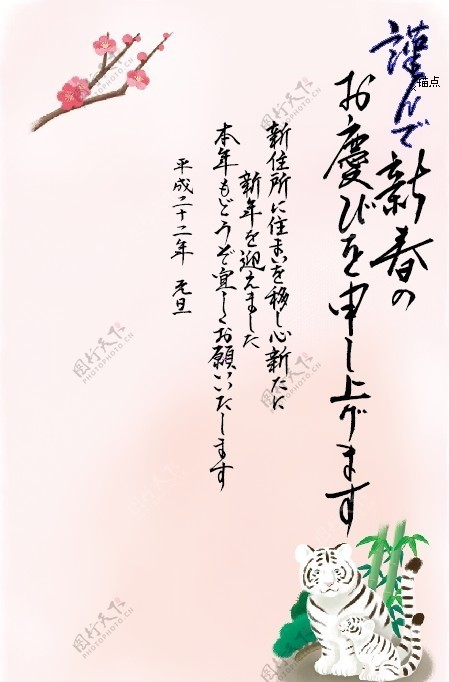 謹んで新春の
お慶びを申し上げます
新住所に住まいを移し心新たに
新年を迎えました
本年もどうぞ宜しくお願いいたします
平成二十二年 元旦
锚点
图行天下
PHOTOPHOTO.CN